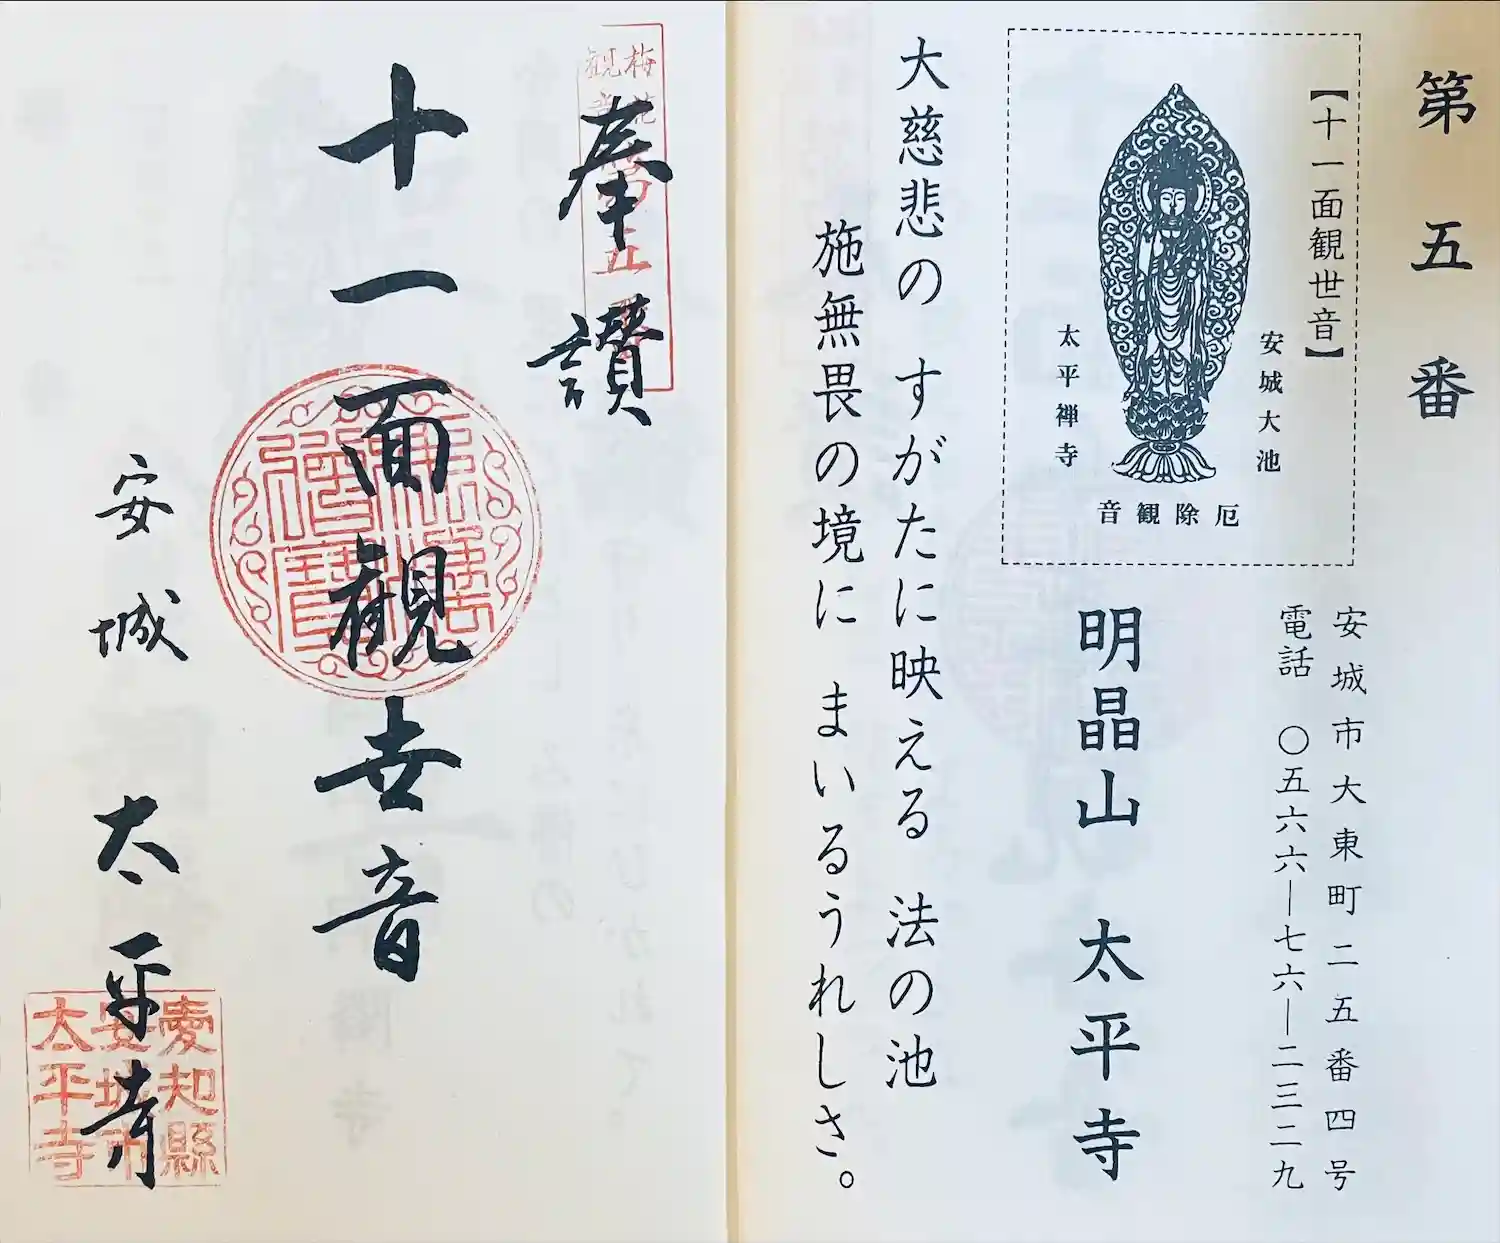 第五番
【十一面観世音】
安城大池
太平禅寺
厄除観音
安城市大東町二五番四号
電話 〇五六六―七六―二三二九
明晶山 太平寺
大慈悲の すがたに映える 法の池
施無畏の境に まいるうれしさ。
梅花
観音
五
奉讃
十一面観世音
安城 太平寺
愛知縣
安城市
太平寺